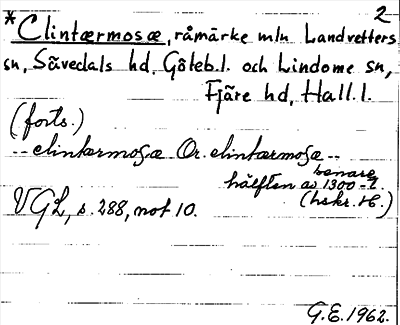 2
*Clintærmosæ, råmärke mln Landvetters
sn, Sävedals hd, Göteb.l. och Lindome sn,
Fjäre hd, Hall.l.
(forts.)
-- clintærmosæ Or. clintærmosæ --
senare
hälften av 1300-t.
VGL, s. 288, not 10.
(hskr. H.)
G.E. 1962.